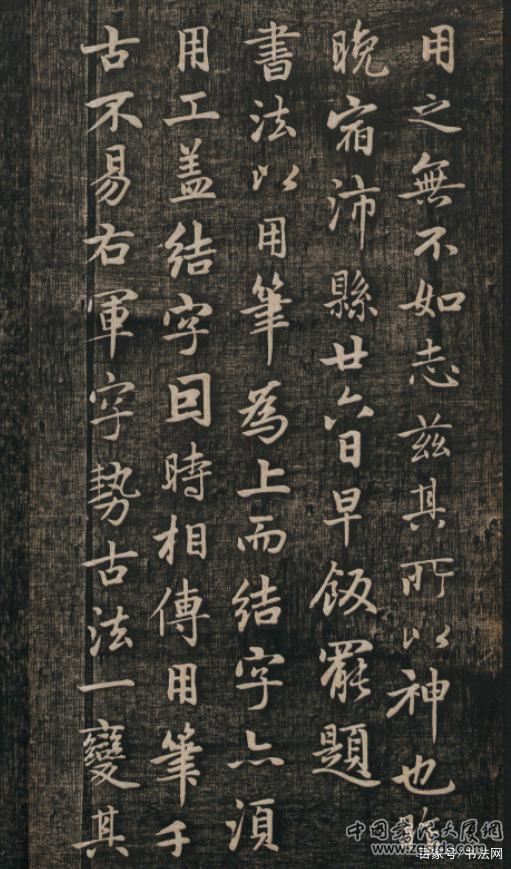 用之無不如志茲其所以神也昨
晚宿沛縣廿六日早飯罷題
書法以用筆為上而結字亦須
用工盖結字因時相傳用筆千
古不易右軍字勢古法一變其
中國書法大展網
百家号/书法网